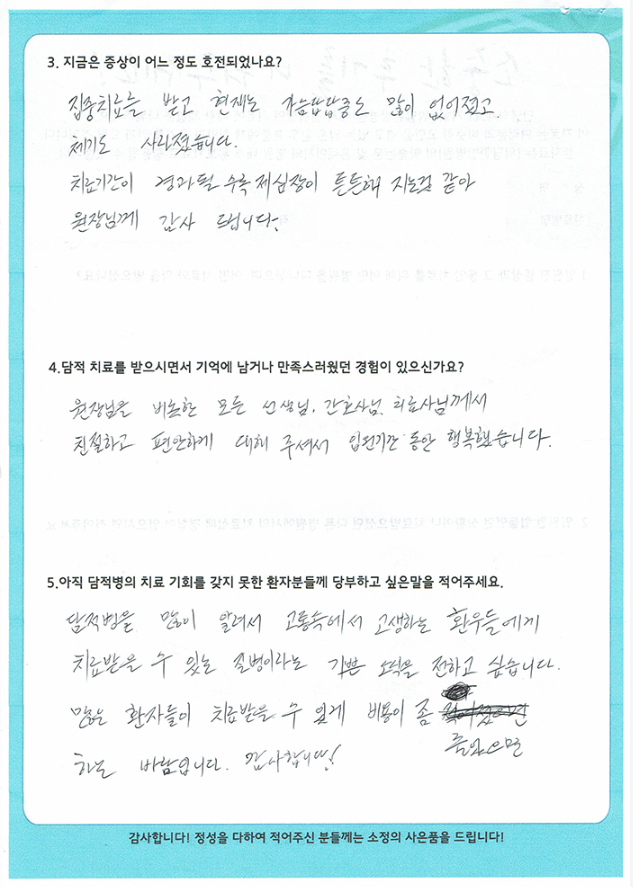 3. 지금은 증상이 어느 정도 호전되었나요?
집중치료를 받고 현재는 가슴답답증도 많이 없어졌고
체기도 사라졌습니다.
치료기간이 경과될 수록 제 심장이 튼튼해 지는것 같아
원장님께 감사 드립니다.
4.담적 치료를 받으시면서 기억에 남거나 만족스러웠던 경험이 있으신가요?
원장님을 비롯한 모든 선생님, 간호사님, 치료사님께서
친절하고 편안하게 대해 주셔서 입원기간 동안 행복했습니다.
5.아직 담적병의 치료 기회를 갖지 못한 환자분들께 당부하고 싶은말을 적어주세요.
담적병을 많이 알려서 고통속에서 고생하는 환우들에게
치료받을 수 있는 질병이라는 기쁜 소식을 전하고 싶습니다.
많은 환자들이 치료받을 수 있게 비용이 좀
줄었으면
하는 바람입니다. 감사합니다!
감사합니다! 정성을 다하여 적어주신 분들께는 소정의 사은품을 드립니다!